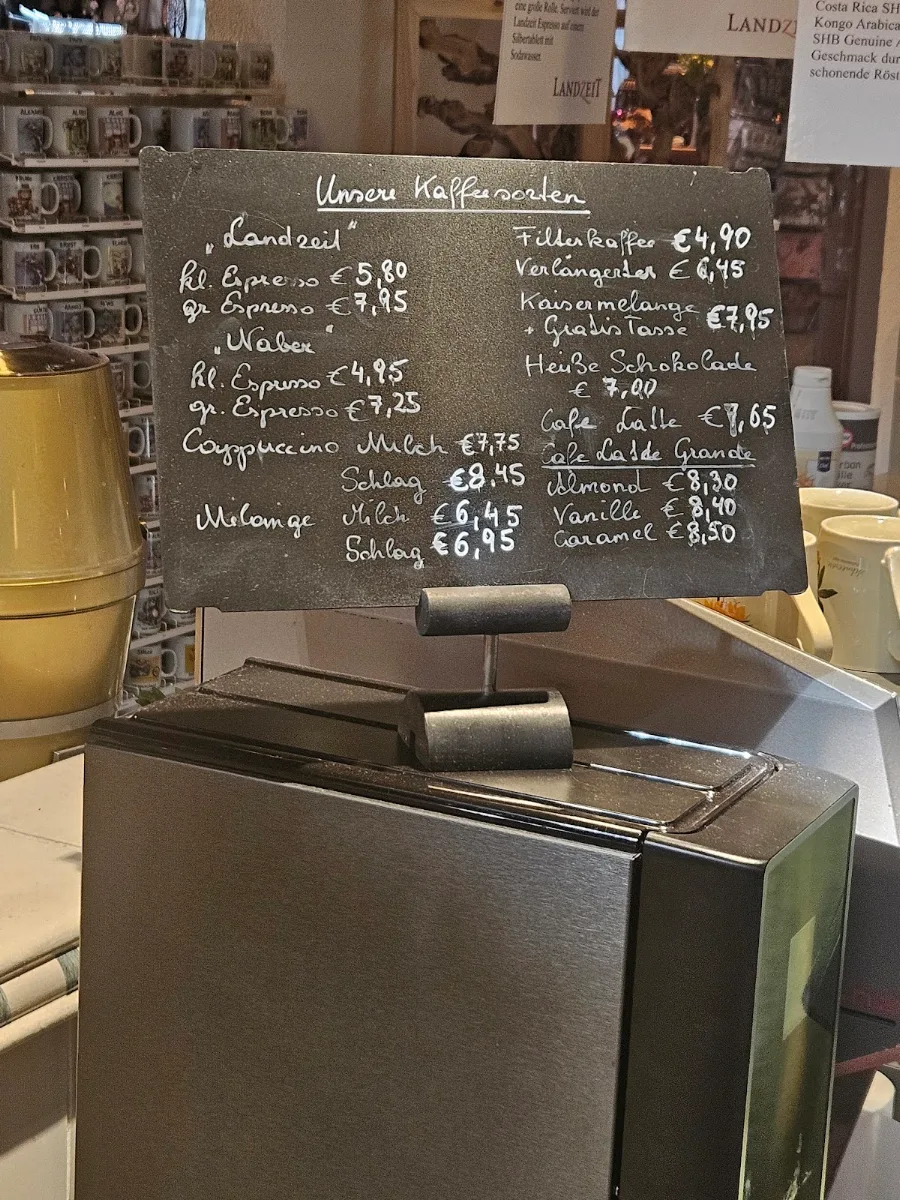 eine große Rolle. Serviert wird der
Landzeit Espresso auf einem
Silbertablett mit
Sodawasser.
LANDZEIT
LANDZ
Costa Rica SH
Kongo Arabica
SHB Genuine A
Geschmack dur
schonende Röst
Unsere Kaffeesorten
„Landzeit“
kl. Espresso € 5,80
gr Espresso € 7,95
„Naber“
kl. Espresso € 4,95
gr. Espresso € 7,25
Cappuccino Milch €7,75
Schlag €8,45
Melange Milch €6,45
Schlag €6,95
Filterkaffee €4,90
Verlängerter € 6,45
Kaisermelange
+ Gratis Tasse €7,95
Heiße Schokolade
€ 7,00
Cafe Latte €7,65
Cafe Latte Grande
Almond €8,30
Vanille €8,40
Caramel €8,50